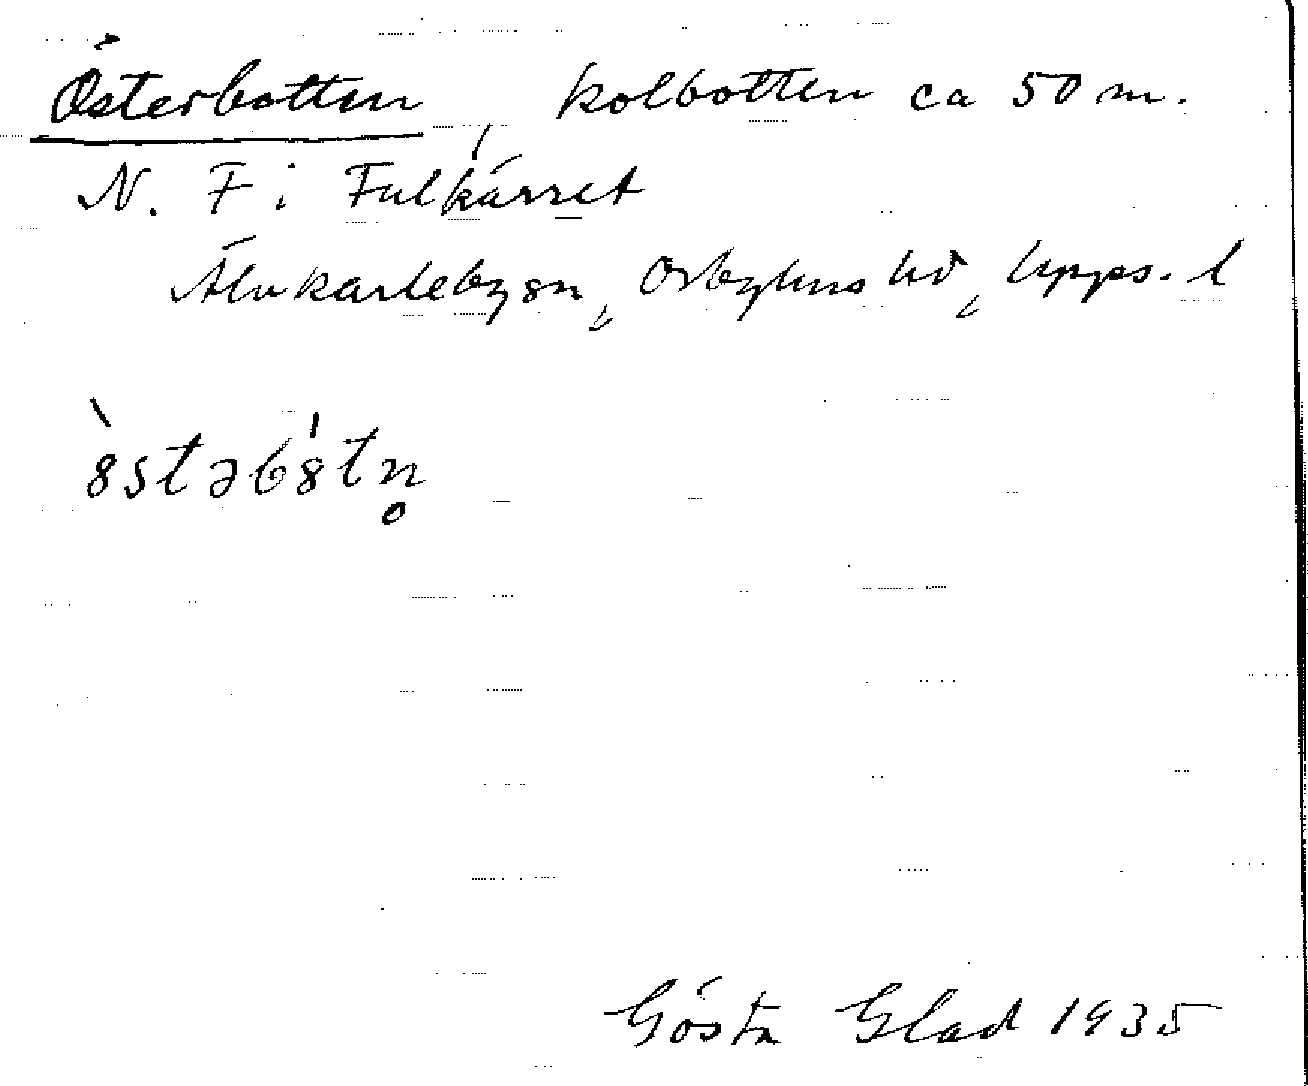 Österbotten, kolbotten ca 50 m.
N. F i Fulkärret
Älvkarleby sn, Örbyhus hd, Upps. l
òstəbótn̥
Gösta Glad 1935